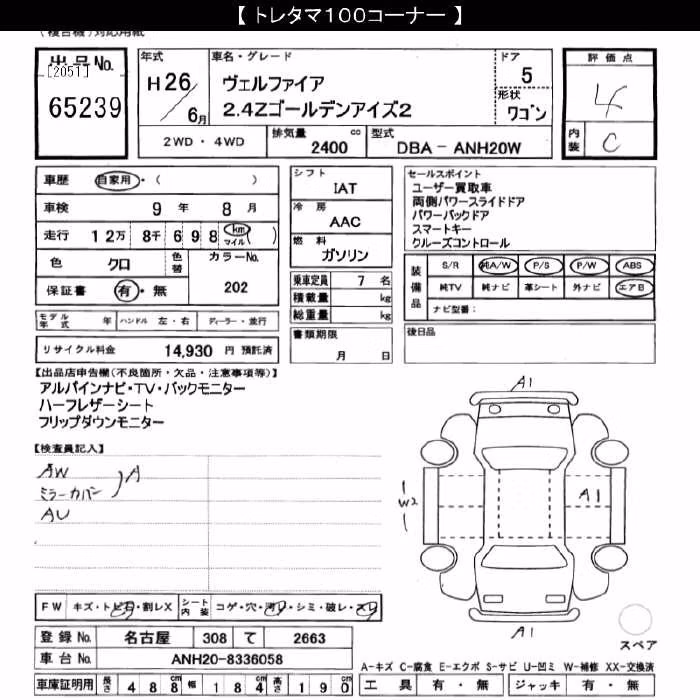 【 トレタマ１００コーナー 】
出品No.
[2051]
65239
年式
H26/6月
車名・グレード
ヴェルファイア
2.4Zゴールデンアイズ2
ドア
5
形状
ワゴン
評価点
4
内装
C
2WD ・ 4WD
排気量
2400 cc
型式
DBA－ ANH20W
車歴 自家用・( )
車検 9 年 8 月
走行 12万 8千 698 km マイル ( )
色 クロ 色替 カラーNo. 202
保証書 有・無
モデル年式 年 ハンドル 左・右 ディーラー・並行
リサイクル料金 14,930 円 預託済
シフト
IAT
冷房
AAC
燃料
ガソリン
乗車定員 7 名
積載量 kg
総重量 kg
書類期限
月 日
セールスポイント
ユーザー買取車
両側パワースライドドア
パワーバックドア
スマートキー
クルーズコントロール
装備品
S/R 純A/W P/S P/W ABS
純TV 純ナビ 革シート 外ナビ エアB
ナビ型番：
後日品
【出品店申告欄(不良箇所・欠品・注意事項等)】
アルパインナビ・TV・バックモニター
ハーフレザーシート
フリップダウンモニター
【検査員記入】
AW
ミラーカバー
A
AU
A1
W2
A1
A1
スペア
FW キズ・トビ石・割レX シート内装 コゲ・穴・汚レ・シミ・破レ・スレ
登録No. 名古屋 308 て 2663
車台No. ANH20-8336058
車庫証明用 長さ 488 幅 184 高さ 190
A-キズ C-腐食 E-エクボ S-サビ U-凹ミ W-補修 XX-交換済
工具 有・無 ジャッキ 有・無